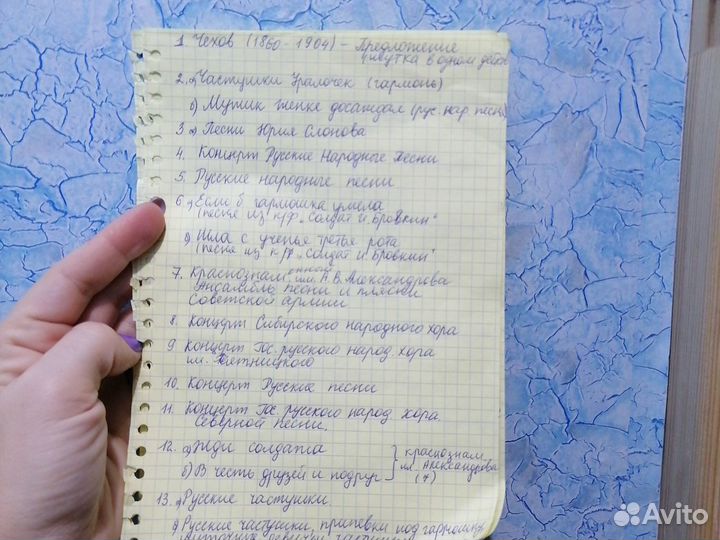 1. Чехов (1860-1904) - Предложение
шутка в одном дейст
2. а) Частушки Уралочек (гармонь)
б) Мужик женке досаждал (рус. нар песня)
3 а) Песни Юрия Слонова
4. Концерт Русские Народные Песни
5. Русские народные песни
6 а) Если б гармошка умела
(песня из к/ф „Солдат И Бровкин"
б) Шла с ученья третья рота
(песня из к/ф „Солдат И Бровкин"
7. Краснознаменный им. А.В. Александрова
Ансамбль песни и пляски
Советской армии
8. Концерт Сибирского народного хора
9 Концерт Гос. русского народ хора
им. Пятницкого
10. Концерт Русские песни
11. Концерт Гос. русского народ хора.
Северной Песни.
12. а) Жди солдата
б) В честь друзей и подруг
краснознам
им. Александрова
(7)
13. а) Русские частушки.
Русские частушки, припевки под гармошку
Avito